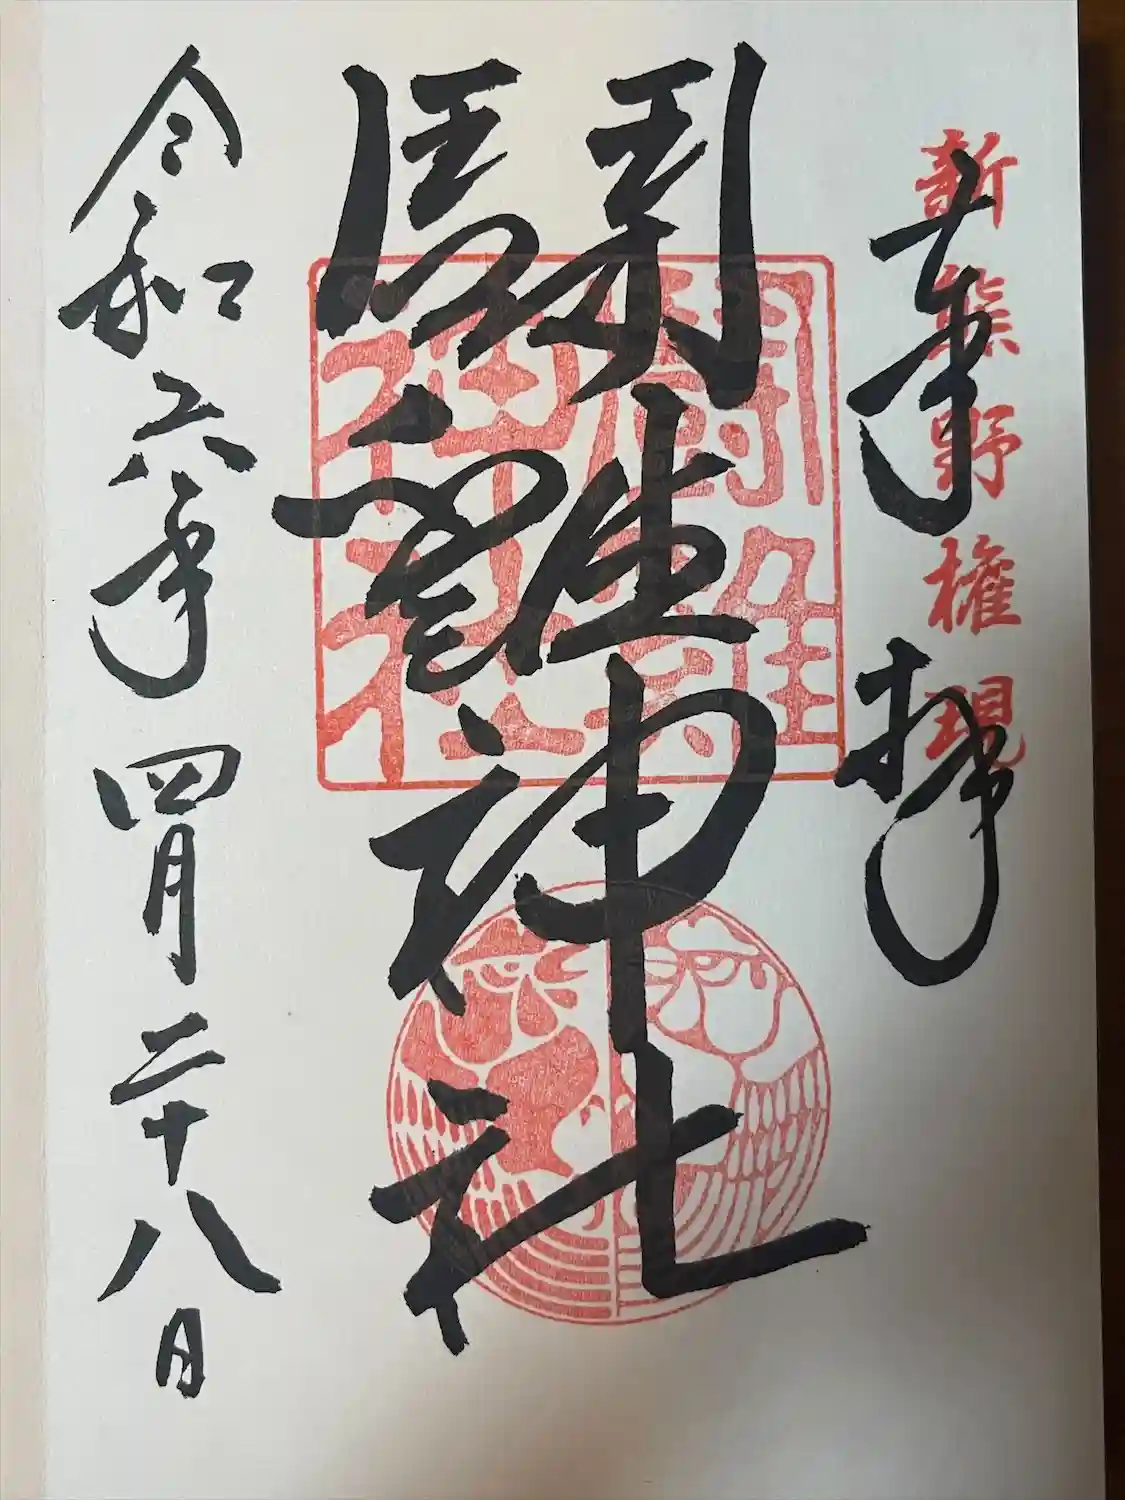 奉拝
新熊野権現
闘雞神社
闘雞神社
令和六年四月二十八日